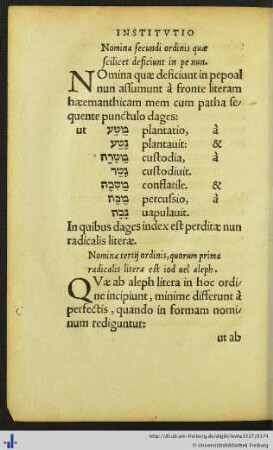 INSTITVTIO
Nomina secundi ordinis quæ
scilicet deficiunt in pe nun.
NOmina quæ deficiunt in pepoal
nun assumunt à fronte literam
hæemanthicam mem cum patha se
quente punctulo dages:
ut מַטָּע plantatio, à
נָטַע plantauit: &
custodia, à
נָטַר custodiuit.
מַסֵּכָה conflatile. &
מַכָּה percussio, à
נָכָה uapulauit.
In quibus dages index est perditæ nun
radicalis literæ.
Nomina tertij ordinis, quorum prima
radicalis litera est iod uel aleph.
QVæ ab aleph litera in hoc ordi
ne incipiunt, minime differunt à
perfectis, quando in formam nomi
num rediguntur:
ut ab
http://dl.ub.uni-freiburg.de/diglit/
© Universitätsbibliothek Freiburg